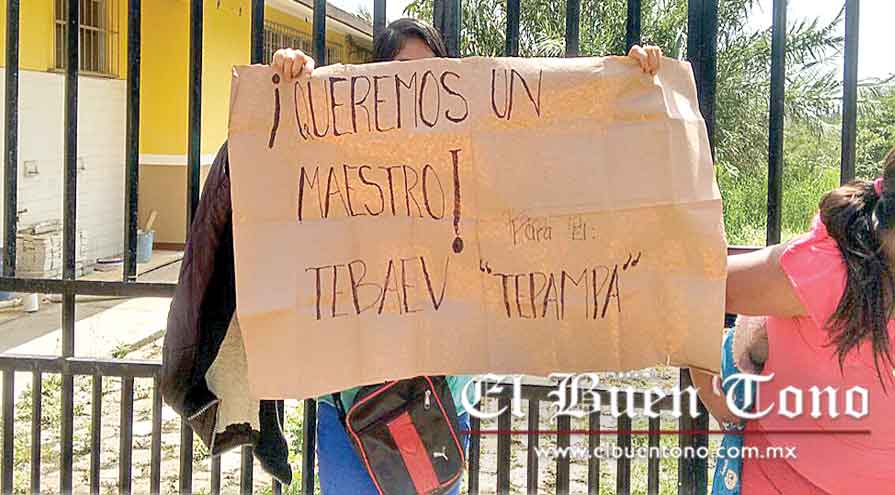 ¡QUEREMOS UN
MAESTRO!
Para El:
TEBAEV "TEPAMPA"
El Buen Tono
www.cibuentono.com.mx